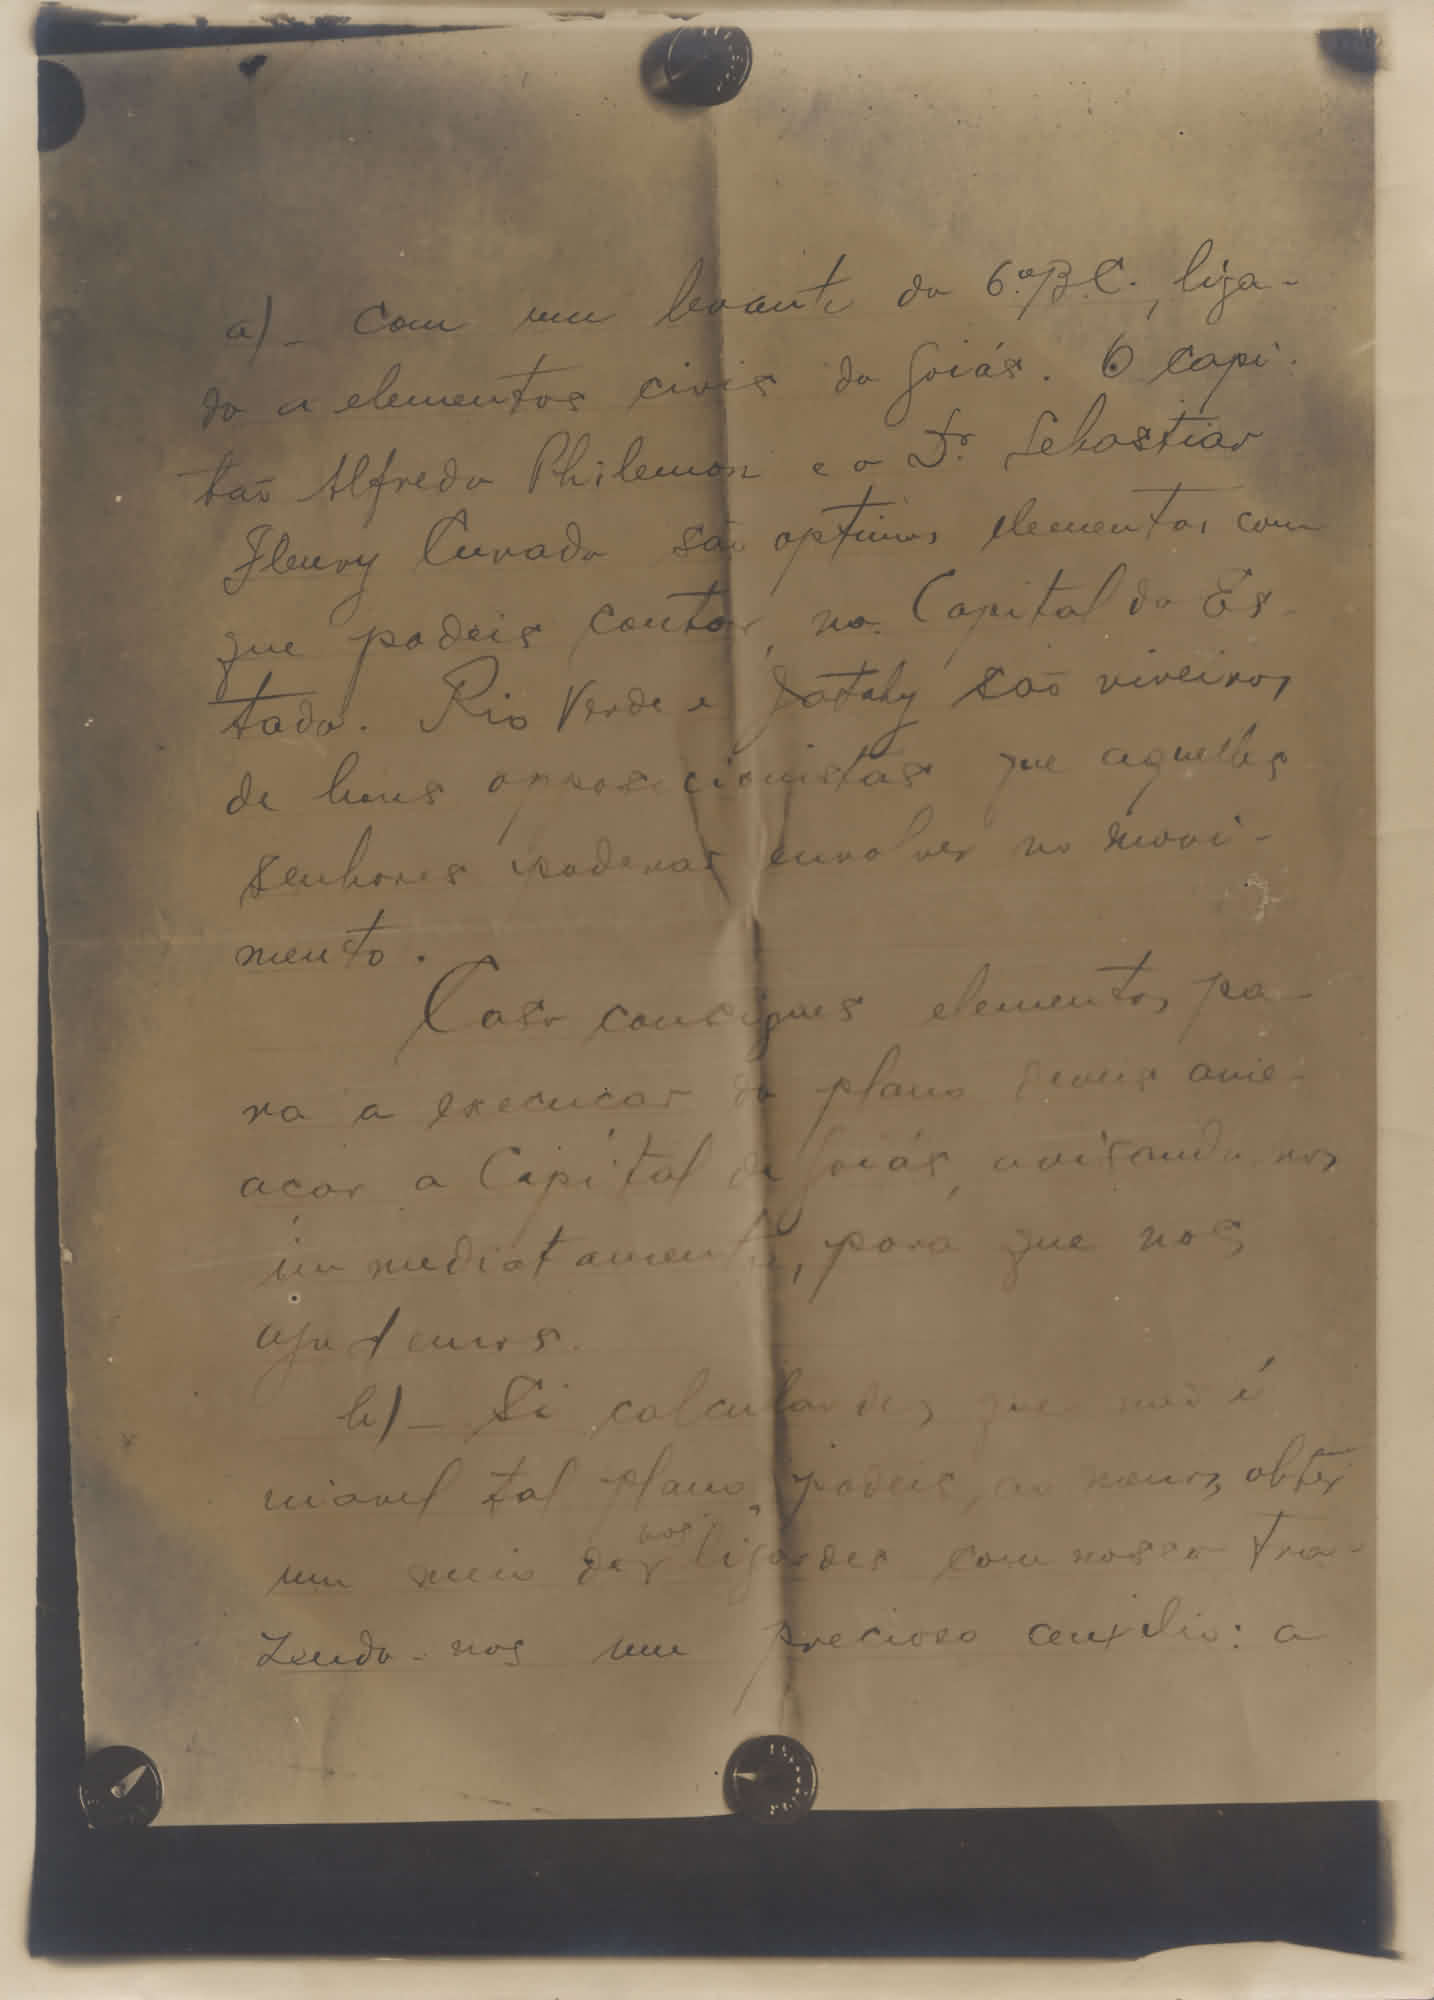 a) - Com um levante do 6.º B.C., liga-
do a elementos civis de Goiás. O capi-
tão Alfredo Philemon e o Dr. Sebastião
Fleury Curado são optimos elementos com
que podeis contar, na Capital do Es-
tado. Rio Verde e Jatahy são viveiros
de bons opposicionistas que aquelles
senhores poderão envolver no movi-
mento.
Caso consigaes elementos pa-
ra a execução do plano deveis ame-
açar a Capital de Goiás, avisando-nos
immediatamente, para que nos
ajustemos.
b) - Si calculardes que não é
viavel tal plano, podeis, ao menos, obter
um meio de vos ligardes com nosco tra-
zendo-nos um precioso auxilio: a